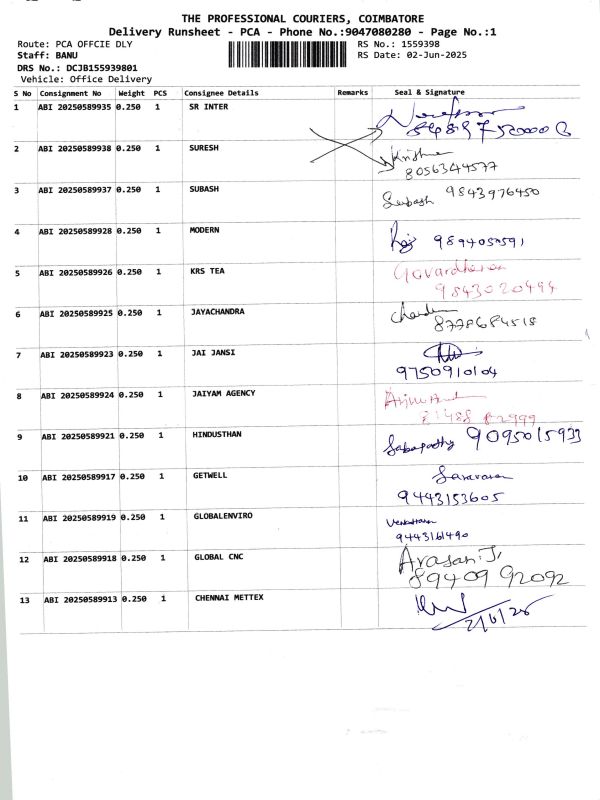 THE PROFESSIONAL COURIERS, COIMBATORE
Delivery Runsheet - PCA - Phone No.:9047080280 - Page No.:1
Route: PCA OFFCIE DLY
RS No.: 1559398
Staff: BANU
RS Date: 02-Jun-2025
DRS No.: DCJB155939801
Vehicle: Office Delivery
S No Consignment No Weight PCS Consignee Details Remarks Seal & Signature
1 ABI 20250589935 0.250 1 SR INTER
2 ABI 20250589938 0.250 1 SURESH Krishna
8056344577
3 ABI 20250589937 0.250 1 SUBASH Subash 9843976450
4 ABI 20250589928 0.250 1 MODERN Raj
5 ABI 20250589926 0.250 1 KRS TEA Govardhanan
9843020494
6 ABI 20250589925 0.250 1 JAYACHANDRA
8778684518
7 ABI 20250589923 0.250 1 JAI JANSI
9750910104
8 ABI 20250589924 0.250 1 JAIYAM AGENCY
9 ABI 20250589921 0.250 1 HINDUSTHAN Sabapathy 9095015933
10 ABI 20250589917 0.250 1 GETWELL Saravanan
9443153605
11 ABI 20250589919 0.250 1 GLOBALENVIRO
9443161490
12 ABI 20250589918 0.250 1 GLOBAL CNC Arasan.J,
89409 92092
13 ABI 20250589913 0.250 1 CHENNAI METTEX
2/6/25